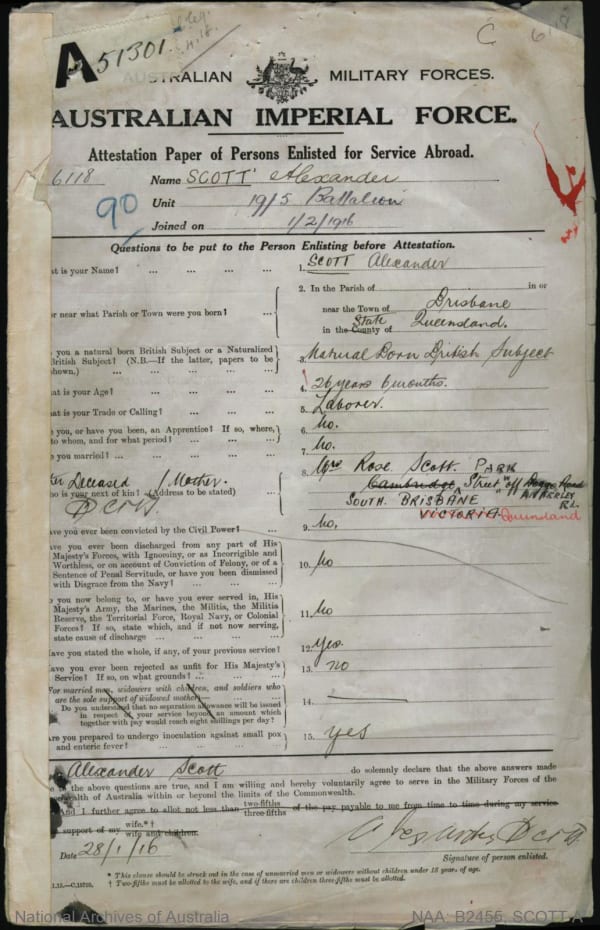 A 51301
C 6118
AUSTRALIAN MILITARY FORCES.
AUSTRALIAN IMPERIAL FORCE.
Attestation Paper of Persons Enlisted for Service Abroad.
6118 Name SCOTT Alexander
90 Unit 19/5 Battalion
Joined on 1/2/1916
Questions to be put to the Person Enlisting before Attestation.
at is your Name? ... ... ... ... 1. SCOTT Alexander
2. In the Parish of in or
or near what Parish or Town were you born? ... near the Town of Brisbane
in the County of State Queensland.
you a natural born British Subject or a Naturalized
British Subject? (N.B.—If the latter, papers to be
shown.) ... ... ... ... 3. Natural Born British Subject
at is your Age? ... ... ... ... 4. 26 years 6 months.
at is your Trade or Calling? ... ... ... 5. Laborer.
you, or have you been, an Apprentice? If so, where,
to whom, and for what period? ... ... 6. No.
you married? ... ... ... ... 7. No.
Deceased / Mother.
o is your next of kin? (Address to be stated) 8. Mrs Rose Scott. PARK
Cambridge Street "off Road
SOUTH BRISBANE
Rd.
VICTORIA Queensland
ave you ever been convicted by the Civil Power? 9. No,
ave you ever been discharged from any part of His
Majesty's Forces, with Ignominy, or as Incorrigible and
Worthless, or on account of Conviction of Felony, or of a
Sentence of Penal Servitude, or have you been dismissed
with Disgrace from the Navy? ... ... 10. No
you now belong to, or have you ever served in, His
Majesty's Army, the Marines, the Militia, the Militia
Reserve, the Territorial Force, Royal Navy, or Colonial
Forces? If so, state which, and if not now serving,
state cause of discharge ... ... ... 11. No
ave you stated the whole, if any, of your previous service? 12. Yes.
ave you ever been rejected as unfit for His Majesty's
Service? If so, on what grounds? ... ... 13. no
For married men, widowers with children, and soldiers who
are the sole support of widowed mother—
Do you understand that no separation allowance will be issued
in respect of your service beyond an amount which
together with pay would reach eight shillings per day? 14.
Are you prepared to undergo inoculation against small pox
and enteric fever? ... ... ... 15. yes
Alexander Scott do solemnly declare that the above answers made
the above questions are true, and I am willing and hereby voluntarily agree to serve in the Military Forces of the
wealth of Australia within or beyond the limits of the Commonwealth.
And I further agree to allot not less than two-fifths three-fifths of the pay payable to me from time to time during my service
support of my wife.*†
wife and children.
Date 28/1/16 Alexander Scott
Signature of person enlisted.
* This clause should be struck out in the case of unmarried men or widowers without children under 18 years of age.
† Two-fifths must be allotted to the wife, and if there are children three-fifths must be allotted.
National Archives of Australia NAA: B2455, SCOTT A